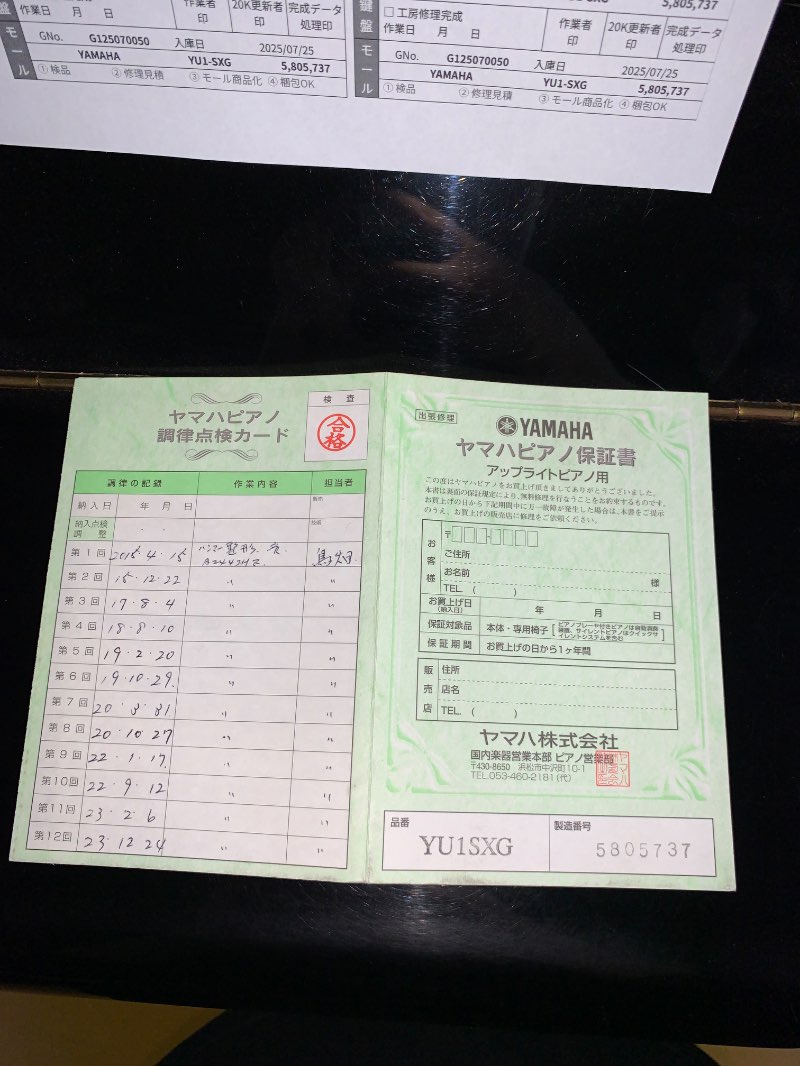 盤 作業日 月 日
作業者 印
20K更新者 印
完成データ 処理印
モール
GNo. G125070050 入庫日 2025/07/25
YAMAHA YU1-SXG 5,805,737
①検品 ②修理見積 ③モール商品化 ④梱包OK
5,805,737
鍵盤
□工房修理完成
作業日 月 日
作業者 印
20K更新者 印
完成データ 処理印
モール
GNo. G125070050 入庫日 2025/07/25
YAMAHA YU1-SXG 5,805,737
①検品 ②修理見積 ③モール商品化 ④梱包OK
ヤマハピアノ
調律点検カード
検 査
合格
調律の記録 作業内容 担当者
納入日 年 月 日
納入点検
調 整
第1回 2015.4.15 ハンマー整形
A=442Hz
第2回 15.12.22 〃 〃
第3回 17.8.4 〃 〃
第4回 18.8.10 〃 〃
第5回 19.2.20 〃 〃
第6回 19.10.29. 〃 〃
第7回 20.3.31 〃 〃
第8回 20.10.27 〃 〃
第9回 22.1.17. 〃 〃
第10回 22.9.12 〃 〃
第11回 23.2.6 〃 〃
第12回 23.12.24 〃 〃
出張修理
YAMAHA
ヤマハピアノ保証書
アップライトピアノ用
この度はヤマハピアノをお買上げ頂きましてありがとうございました。
本書は裏面の保証規定により、無料修理を行なうことをお約束するものです。
お買上げの日から下記期間中に万一故障が発生した場合は、本書をご提示
のうえ、お買上げの販売店に修理をご依頼ください。
お客様
〒
ご住所
お名前 様
TEL ( )
お買上げ日
(納入日) 年 月 日
保証対象品 本体・専用椅子
ピアノプレーヤ付きピアノは自動演奏
装置、サイレントピアノはクイックサ
イレントシステムを含む
保証期間 お買上げの日から1ヶ年間
販売店
住所
店名
TEL. ( )
ヤマハ株式会社
国内楽器営業本部 ピアノ営業部
〒430-8650 浜松市中沢町10-1
TEL.053-460-2181(代)
品番 YU1SXG
製造番号 5805737